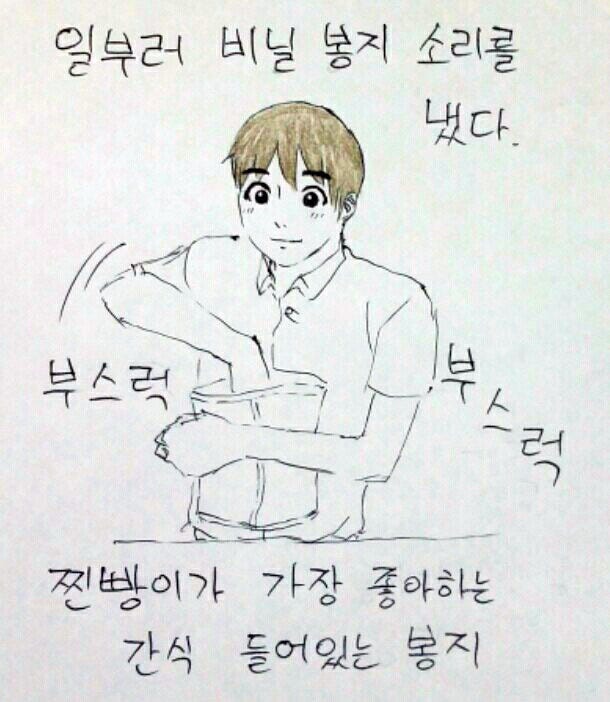 일부러 비닐 봉지 소리를
냈다.
부스럭
부스럭
찐빵이가 가장 좋아하는
간식 들어있는 봉지